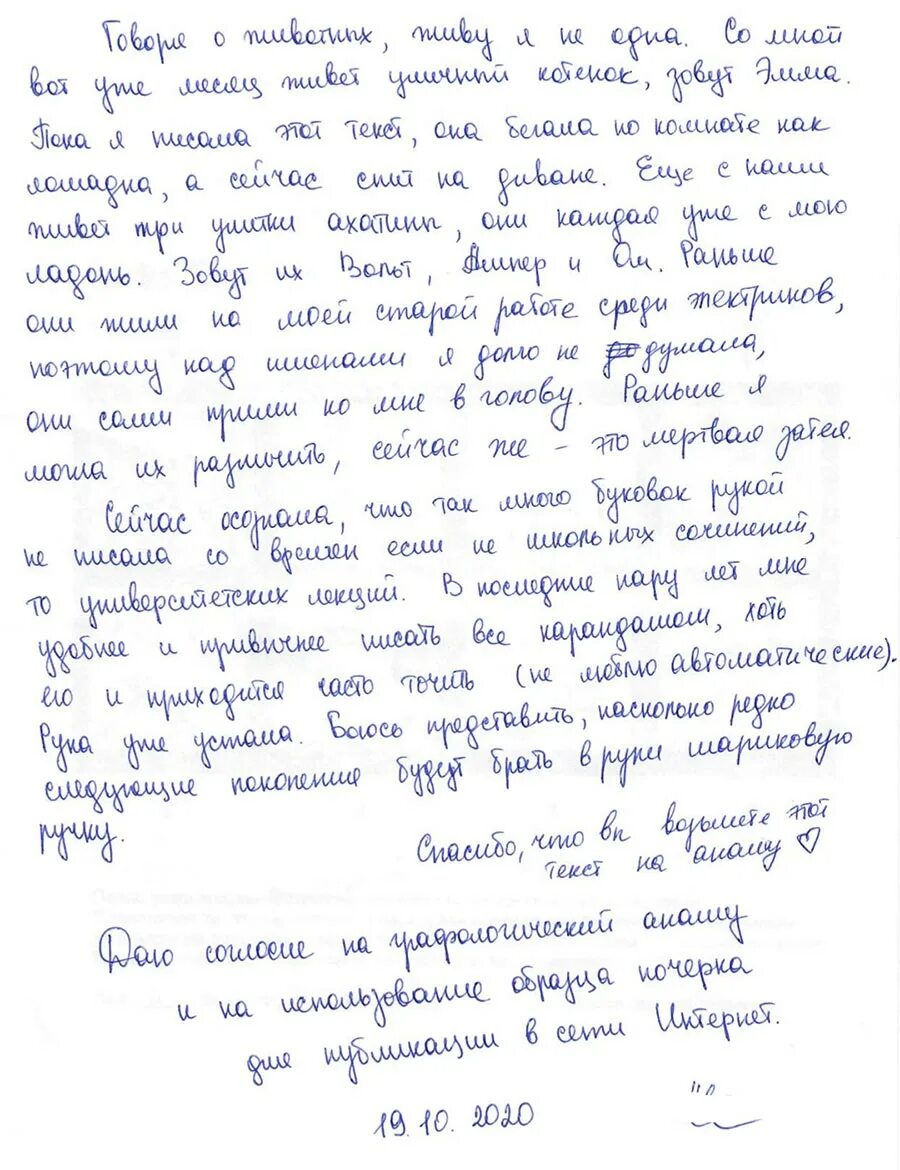 Говоря о животных, живу я не одна. Со мной
вот уже месяц живет уличный котенок, зовут Эмма.
Пока я писала этот текст, она бегала по комнате как
лошадка, а сейчас спит на диване. Еще с нами
живет три улитки ахатины, они каждая уже с мою
ладонь. Зовут их Вольт, Ампер и Ом. Раньше
они жили на моей старой работе среди электриков,
поэтому над именами я долго не думала,
они сами пришли ко мне в голову. Раньше я
могла их различить, сейчас же – это мертвая затея.
Сейчас осознала, что так много буковок рукой
не писала со времен если не школьных сочинений,
то университетских лекций. В последние пару лет мне
удобнее и привычнее писать все карандашом, хоть
его и приходится часто точить (не люблю автоматические).
Рука уже устала. Боюсь представить, насколько редко
следующие поколения будут брать в руки шариковую
ручку.
Спасибо, что вы возьмете этот
текст на анализ ♡
Даю согласие на графологический анализ
и на использование образца почерка
для публикации в сети Интернет.
19.10.2020